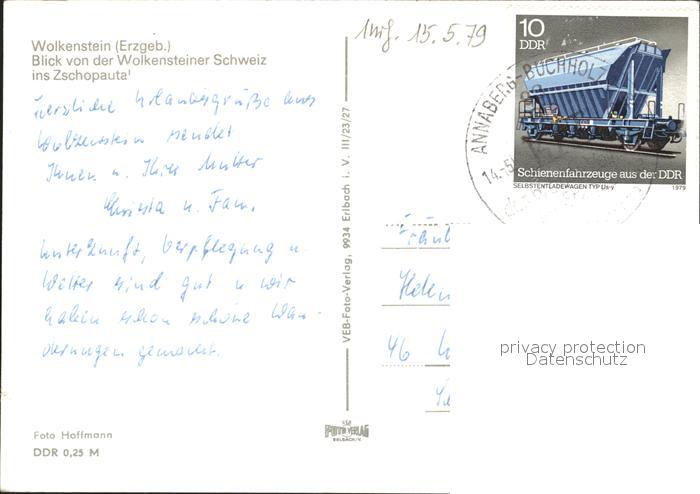 Wolkenstein (Erzgeb.)
Blick von der Wolkensteiner Schweiz
ins Zschopautal
Herzliche Urlaubsgrüße aus
Wolkenstein sendet
Ihnen u. Ihrer Mutter
Christa u. Fam.
Unterkunft, Verpflegung u.
Wetter sind gut u wir
haben schon schöne Wan-
derungen gemacht.
Foto Hoffmann
DDR 0,25 M
VEB-Foto-Verlag, 9934 Erlbach i. V. III/23/27
FOTO VERLAG
ERLBACH/V.
15.5.79
10
DDR
Schienenfahrzeuge aus der DDR
SELBSTENTLADEWAGEN TYP Us-y 1979
ANNABERG-BUCHHOLZ
14.-5
Fräul
Helen
46
privacy protection
Datenschutz